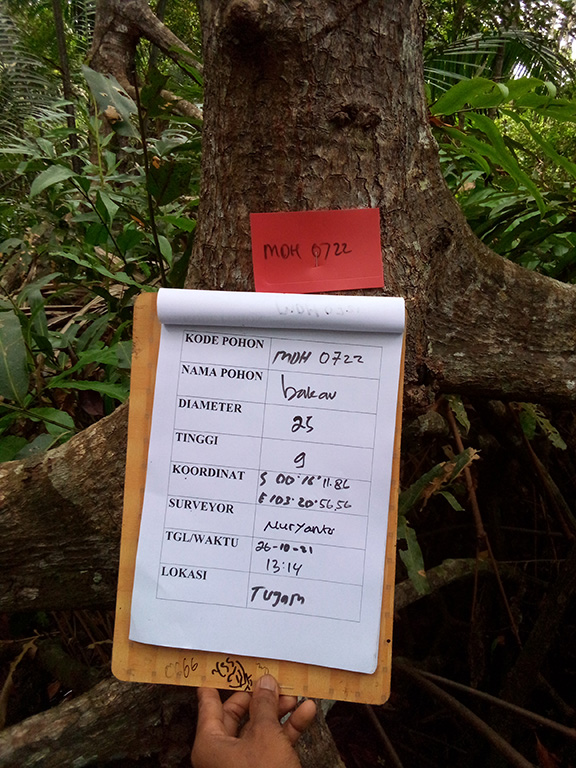 MDH 0722
KODE POHON MDH 0722
NAMA POHON bakau
DIAMETER 25
TINGGI 9
KOORDINAT S 00°16'11.86
E 103°20'56,56
SURVEYOR Nuryanto
TGL/WAKTU 26-10-21
13:14
LOKASI Tugam